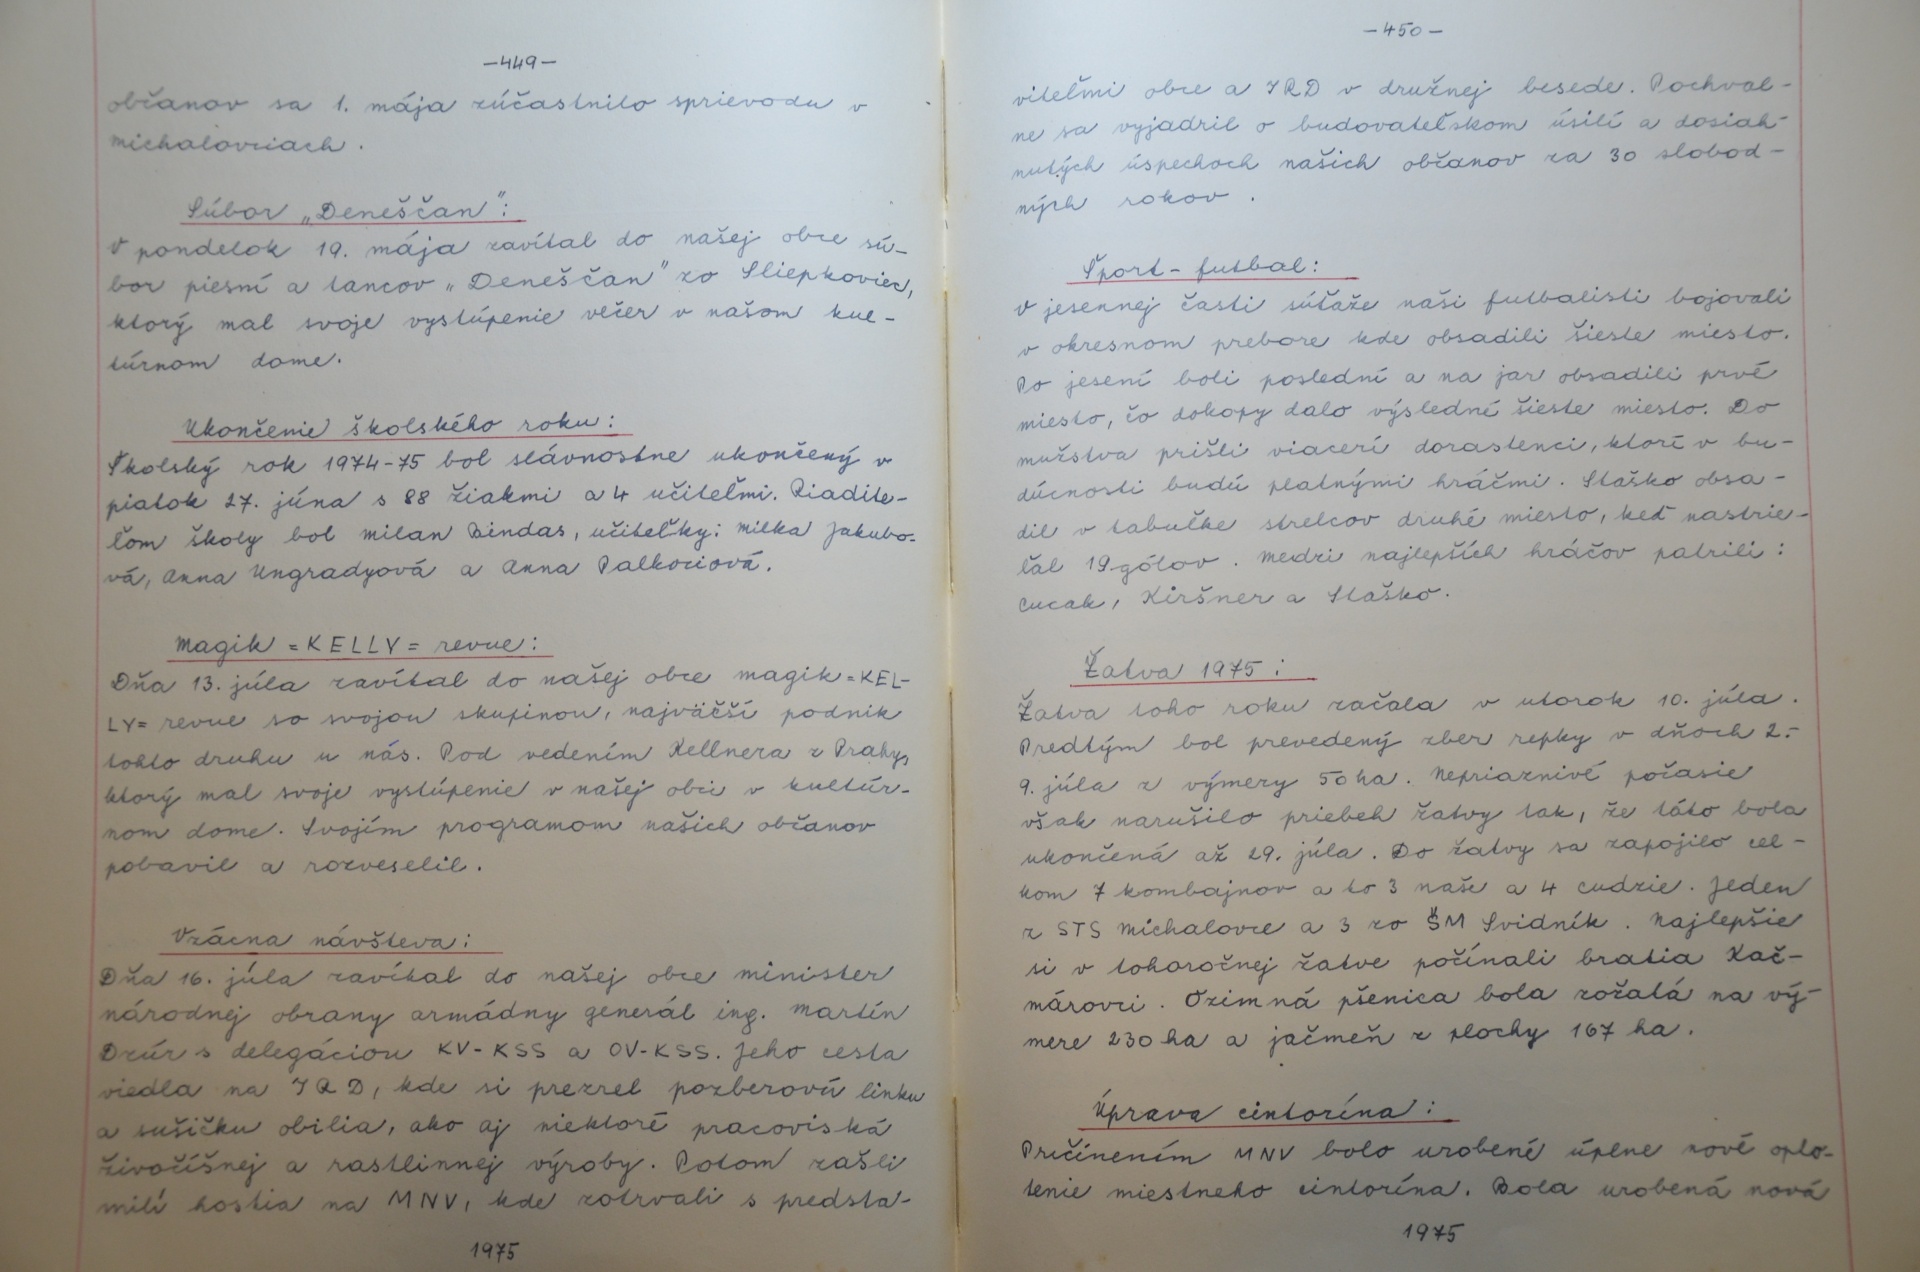 -449-
občanov sa 1. mája zúčastnilo sprievodu v
Michalovciach.
Súbor „Deneščan":
V pondelok 19. mája zavítal do našej obce sú-
bor piesní a tancov „Deneščan" zo Sliepkoviec,
ktorý mal svoje vystúpenie večer v našom kul-
túrnom dome.
Ukončenie školského roku:
Školský rok 1974-75 bol slávnostne ukončený v
piatok 27. júna s 88 žiakmi a 4 učiteľmi. Riadite-
ľom školy bol Milan Bindas, učiteľky: Milka Jakubo-
vá, Anna Ungradyová a Anna Palkociová.
Magik =KELLY= revue:
Dňa 13. júla zavítal do našej obce magik =KEL-
LY= revue so svojou skupinou, najväčší podnik
tohto druhu u nás. Pod vedením Kellnera z Prahy,
ktorý mal svoje vystúpenie v našej obci v kultúr-
nom dome. Svojím programom našich občanov
pobavil a rozveselil.
Vzácna návšteva:
Dňa 16. júla zavítal do našej obce minister
národnej obrany armádny generál ing. Martin
Dzúr s delegáciou KV-KSS a OV-KSS. Jeho cesta
viedla na JRD, kde si prezrel pozberovú linku
a sušičku obilia, ako aj niektoré pracoviská
živočíšnej a rastlinnej výroby. Potom zašli
milí hostia na MNV, kde zotrvali s predsta-
1975
-450-
viteľmi obce a JRD v družnej besede. Pochval-
ne sa vyjadril o budovateľskom úsilí a dosiah-
nutých úspechoch našich občanov za 30 slobod-
ných rokov.
Šport - futbal:
V jesennej časti súťaže naši futbalisti bojovali
v okresnom prebore kde obsadili šieste miesto.
Po jeseni boli poslední a na jar obsadili prvé
miesto, čo dokopy dalo výsledné šieste miesto. Do
mužstva prišli viacerí dorastenci, ktorí v bu-
dúcnosti budú platnými hráčmi. Staško obsa-
dil v tabuľke strelcov druhé miesto, keď nastrie-
ľal 19 gólov. Medzi najlepších hráčov patrili:
Cucak, Kiršner a Staško.
Žatva 1975:
Žatva toho roku začala v utorok 10. júla.
Predtým bol prevedený zber repky v dňoch 2.-
9. júla z výmery 50 ha. Nepriaznivé počasie
však narušilo priebeh žatvy tak, že táto bola
ukončená až 29. júla. Do žatvy sa zapojilo cel-
kom 7 kombajnov a to 3 naše a 4 cudzie. Jeden
z STS Michalovce a 3 zo ŠM Svidník. Najlepšie
si v tohoročnej žatve počínali bratia Kač-
márovci. Ozimná pšenica bola zožatá na vý-
mere 230 ha a jačmeň z plochy 167 ha.
Úprava cintorína:
Pričinením MNV bolo urobené úplne nové oplo-
tenie miestneho cintorína. Bola urobená nová
1975